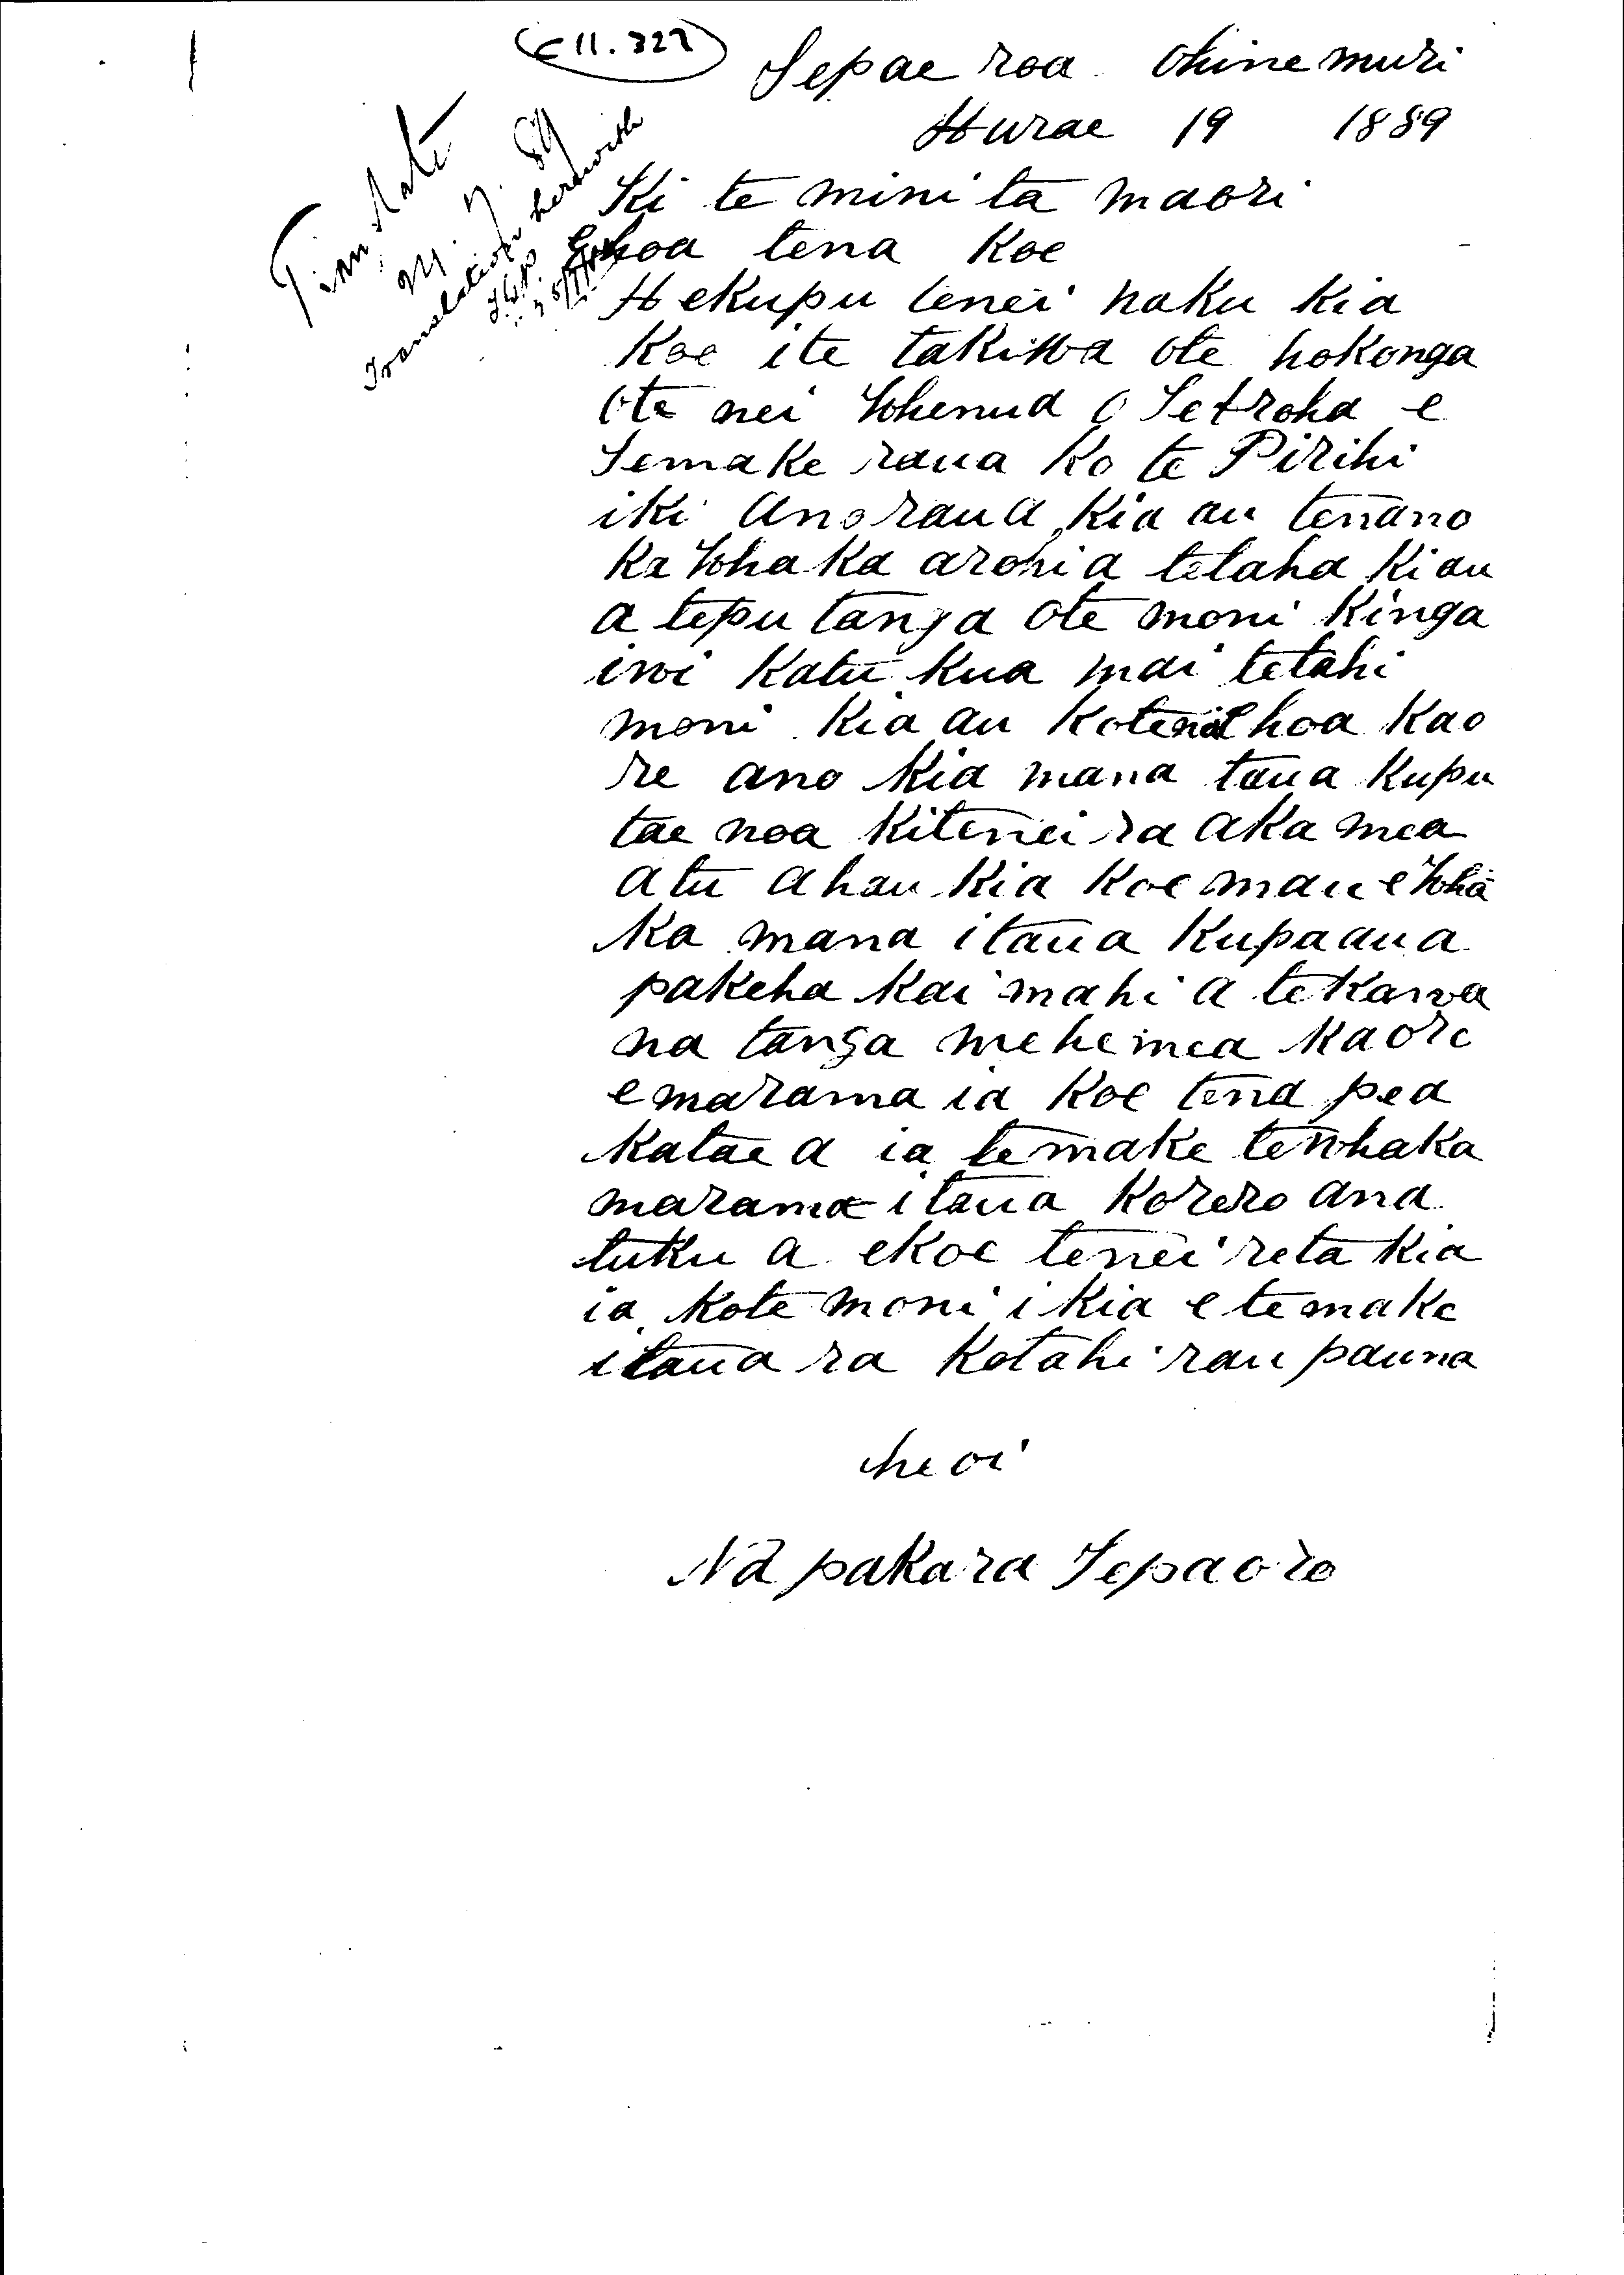 E 11. 322
Tepae roa Ohinemuri
Hurae 19 1889
Translate
24. 7. 89
Translation herewith
Ki te minita maori
Ehoa tena Koe
Hekupu tenei naku kia
Koe ite takiwa ote hokonga
ote nei Whenua o Tearoha e
Temake raua Ko te Pirihi
iki anoraua kia au tenano
Ka Whaka arohia tetaha Kiau
a teputanga ote moni Kinga
iwi Katukua mai tetahi
moni kia au KotenaEhoa Kao
re ano kia mana taua Kupu
tae noa Kitenei ra aka mea
atu ahau Kia Koe mau e Wha
Ka mana itaua Kupaaua
pakeha Kai mahi a teKawa
na tanga mehemea Kaore
emarama ia Koe tena pea
Katae a ia temake teWhaka
marama itaua Korero ana
tuku a ekoe tenei reta Kia
ia Kote moni i kia e temake
itaua ra Kotahi rau pauna
heoi
Na pakara Tepaoro